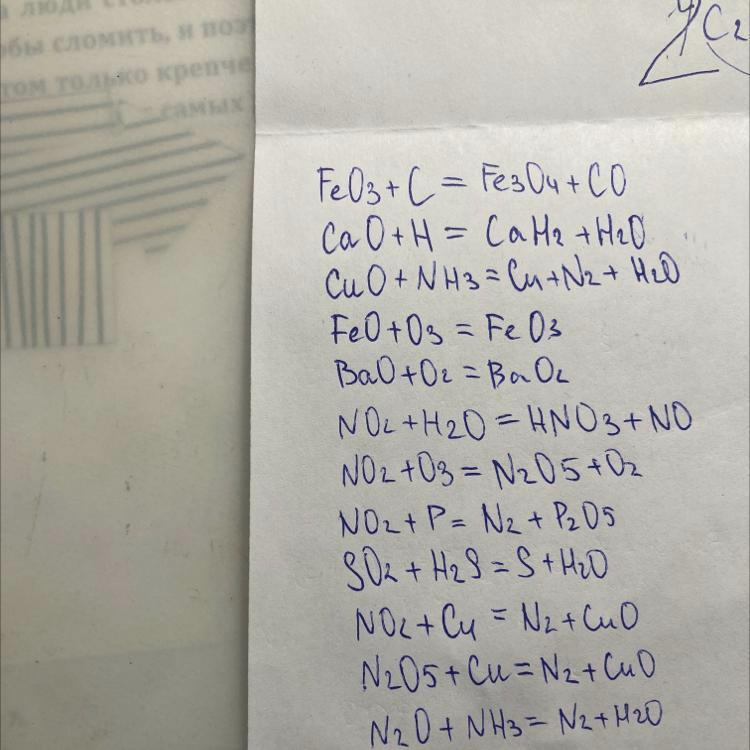 а люди
обы сломить, и поэ
том только крепче
самых
4) C2
FeO3 + C = Fe3O4 + CO
CaO + H = CaH2 + H2O
CuO + NH3 = Cu + N2 + H2O
FeO + O3 = FeO3
BaO + O2 = BaO2
NO2 + H2O = HNO3 + NO
NO2 + O3 = N2O5 + O2
NO2 + P = N2 + P2O5
SO2 + H2S = S + H2O
NO2 + Cu = N2 + CuO
N2O5 + Cu = N2 + CuO
N2O + NH3 = N2 + H2O